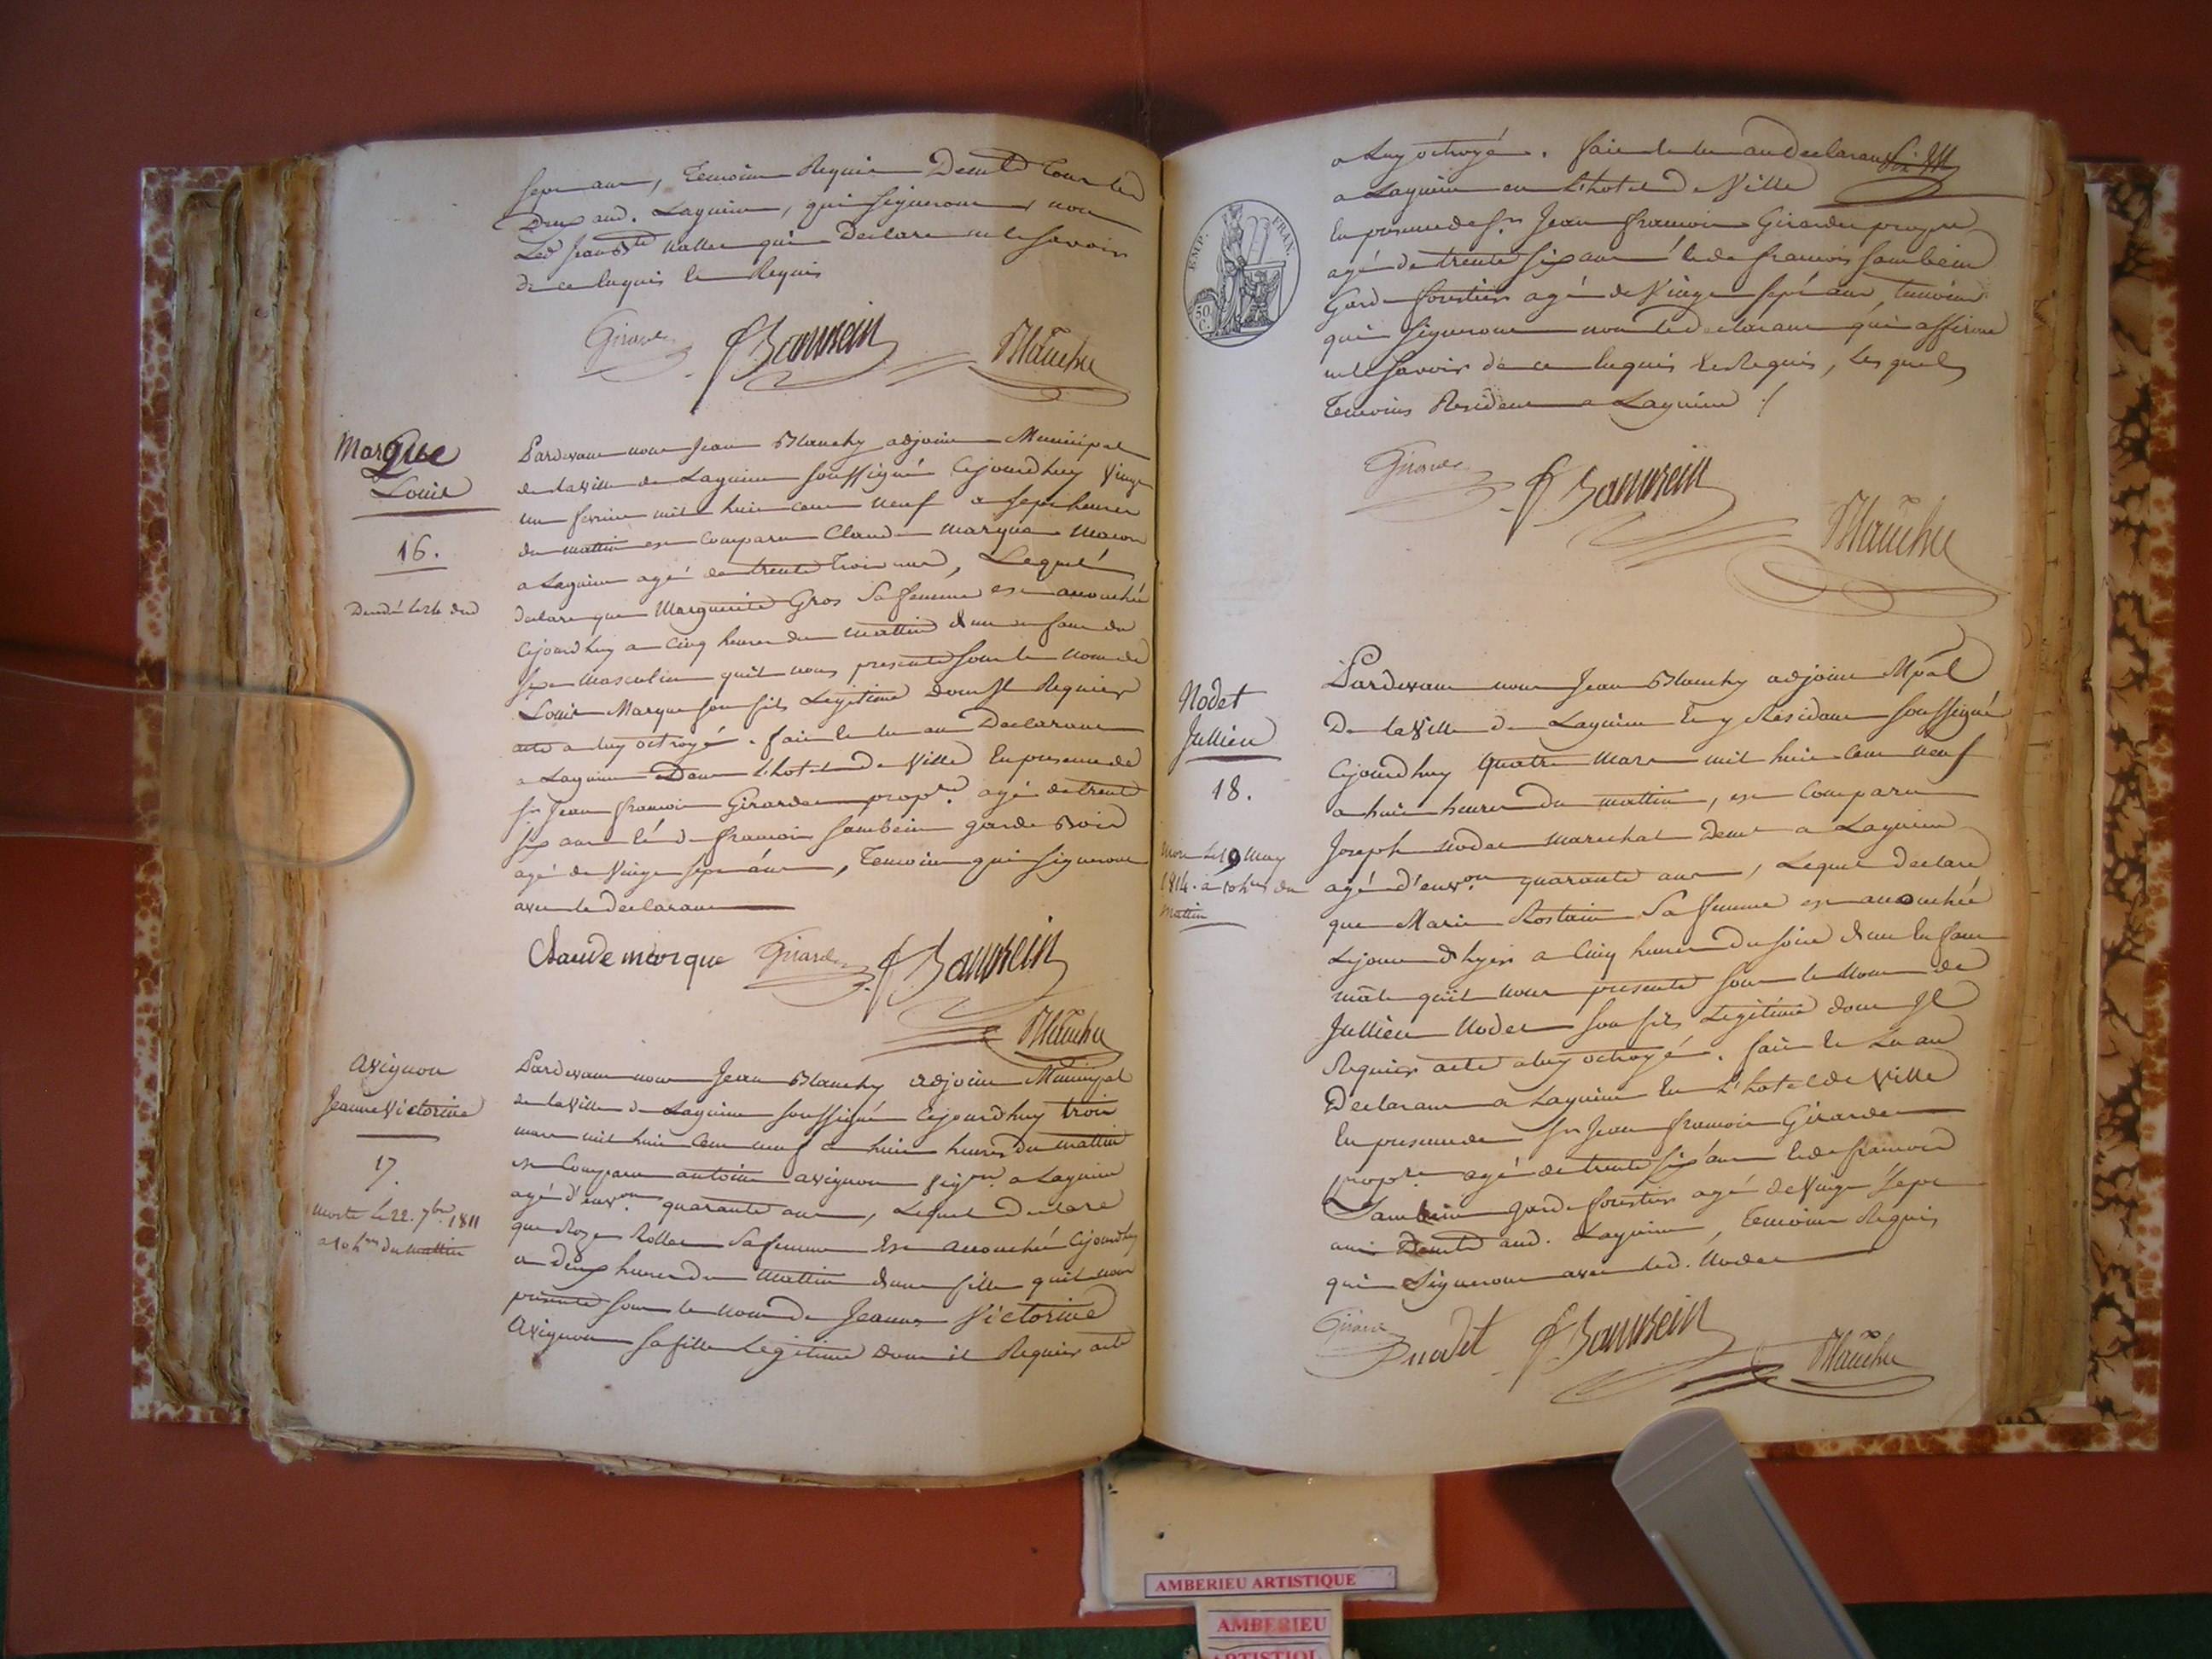 sept ans, Temoins Requis Demt Tous les
Deux aud. Lagnieu, qui signeront, non
Led Jean Bte Nallet qui Declare ne le savoir
de ce Enquis le Requis
Girardet
Sambein
Blanchy
Marque
Louis
16.
Pardevant nous Jean Blanchy adjoint Municipal
de la Ville de Lagnieu soussigné Cejourdhuy Vingt
un fevrier mil huit cent neuf a sept heures
du mattin est Comparu Claude Marque Macon
a Lagnieu agé de trente Trois ans, Lequel
declare que Marguerite Gros Sa femme est accouchée
Cejourdhuy a Cinq heures du mattin d'un enfant du
sexe Masculin qu'il nous presente sous le nom de
Louis Marque son fils Legitime dont Il Requiert
acte a luy octroyé. fait et lu au Declarant
a Lagnieu Dans L'hotel De Ville En presence de
Sr Jean francois Girardet propre. agé de trente
six ans et de francois Sambein garde Bois
agé de Vingt sept ans, Temoins qui signeront
avec le declarant
Claude marque
Girardet
Sambein
Blanchy
Avignon
Jeanne Victorine
17.
morte le 22. 7bre 1811
a 10 hres du mattin
Pardevant nous Jean Blanchy adjoint Municipal
de la Ville de Lagnieu soussigné Cejourdhuy trois
mars mil huit Cent neuf a huit heures du mattin
est Comparu antoine avignon vigon. a Lagnieu
agé d'environ quarante ans, Lequel Declare
que Roze Rollet Sa femme Est accouchée Cejourdhuy
a deux heures du Mattin d'une fille qu'il nous
presente sous le nom de Jeanne Victorine
Avignon sa fille Legitime dont il Requiert acte
EMP. FRAN.
50 C.
a Luy octroyé. fait et lu au Declarant
a Lagnieu en L'hotel De Ville
En presence de Sr Jean francois Girardet propre
agé de trente six ans et de francois Sambein
Garde forestier agé de Vingt sept ans, temoins
qui signeront non le declarant qui affirme
ne le savoir de ce Enquis et Requis, Les quels
Temoins Resident a Lagnieu
Girardet
Sambein
Blanchy
Nodet
Jullien
18.
mort le 19 May
1814. a 10 hres du
mattin
Pardevant nous Jean Blanchy adjoint Mpal
De la Ville de Lagnieu En y Residant soussigné
Cejourdhuy quatre Mars mil huit Cent neuf
a huit heures du mattin, est Comparu
Joseph Nodet marechal Demt a Lagnieu
agé d'environ quarante ans, Lequel declare
que Marie Rostain Sa femme est accouchée
Lejour d'hyer a Cinq heures du soir d'un Enfant
mâle qu'il nous presente sous le Nom de
Jullien Nodet son fils Legitime dont Il
Requiert acte a luy octroyé. fait et Lu au
Declarant a Lagnieu En L'hotel de Ville
En presence de Sr Jean francois Girardet
propre. agé de trente six ans et de francois
Sambein garde forestier agé de Vingt sept
ans Demt aud. Lagnieu, Temoins Requis
qui Signeront avec led. Nodet
Girardet
nodet
Sambein
Blanchy
AMBERIEU ARTISTIQUE
AMBERIEU